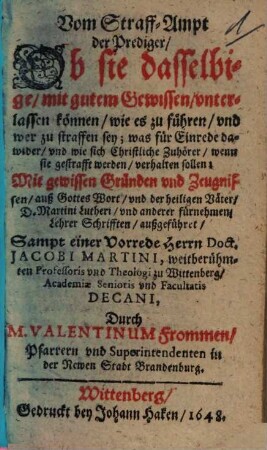 Vom Straff-Ampt
der Prediger/
Ob sie dasselbi-
ge/ mit gutem Gewissen/ vnter-
lassen können/ wie es zu führen/ vnd
wer zu straffen sey; was für Einrede da-
wider/ vnd wie sich Christliche Zuhörer/ wenn
sie gestrafft werden/ verhalten sollen:
Mit gewissen Gründen vnd Zeugnis-
sen/ auß Gottes Wort/ vnd der heiligen Väter/
D. Martini Lutheri/ vnd anderer fürnehmen
Lehrer Schrifften/ außgeführet/
Sampt einer Vorrede Herrn Doct.
JACOBI MARTINI, weitberühm-
ten Professoris vnd Theologi zu Wittenberg/
Academiæ Senioris vnd Facultatis
DECANI,
Durch
M. VALENTINUM Frommen/
Pfarrern vnd Superintendenten in
der Newen Stadt Brandenburg.
Wittenberg/
Gedruckt bey Johann Haken/ 1648.